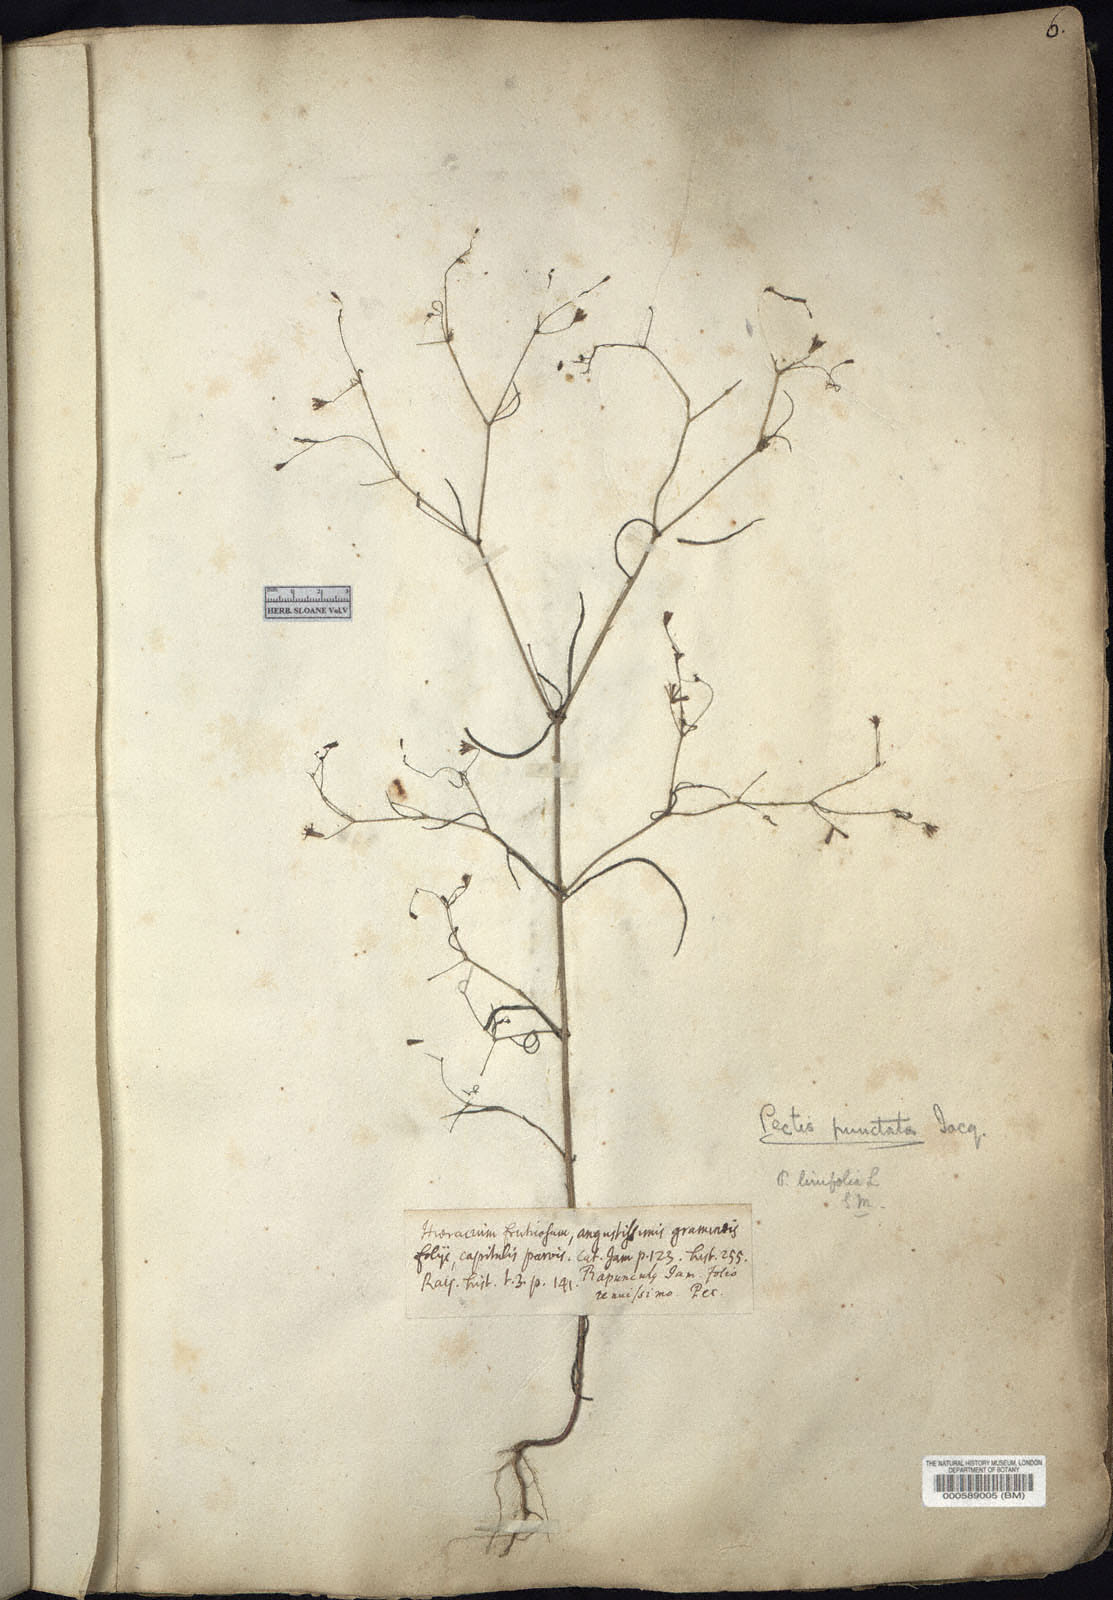 6.
mm 1 2 3
HERB. SLOANE Vol.V
Pectis punctata Jacq.
P. linifolia L
S.M.
Hieracium fruticosum, angustissimis gramineis
folijs, capitulis parvis. Cat. Jam p. 123. hist. 255.
Raij. hist. t. 3. p. 141. Rapunculus Jam. folio
tenuissimo. Pet.
THE NATURAL HISTORY MUSEUM, LONDON
DEPARTMENT OF BOTANY
000589005 (BM)